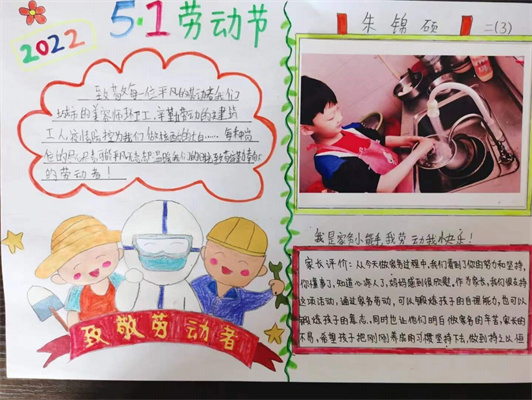 2022
5·1劳动节
致敬每一位平凡的劳动者我们
城市的美容师环卫工、辛勤劳动的建筑
工人、疫情防控为我们做核酸的大白……每种岗
的劳动者！
致敬劳动者
朱锦硕 二(3)
我是家务小能手,我劳动我快乐！
家长评价：从今天做家务过程中,我们看到了你的努力和坚持,
你懂事了,知道心疼人了,妈妈感到很欣慰,作为家长,我们很支持
这项活动，通过家务劳动，可以锻炼孩子的自理能力，也可以
锻炼孩子的意志，同时也让他们明白做家务的辛苦,家长的
不易,希望孩子把刚刚养成的习惯坚持下去,做到持之以恒